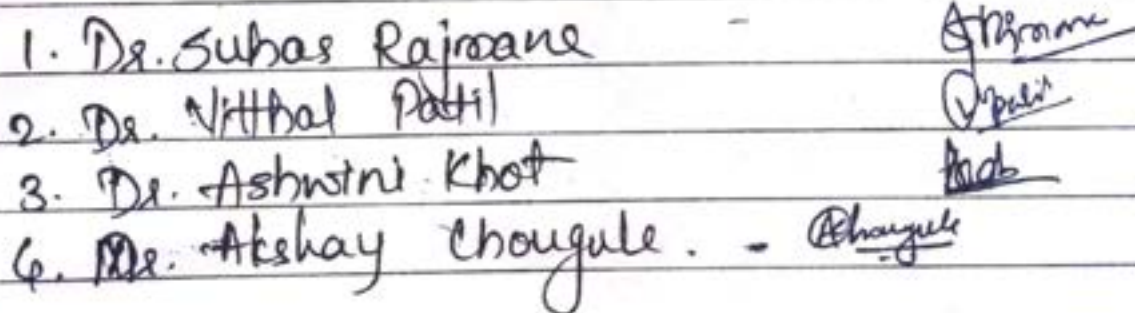 1. Dr. Suhas Rajmane -
2. Dr. Vitthal Patil
3. Dr. Ashwini Khot
4. Dr. Akshay Chougule. - AChougule